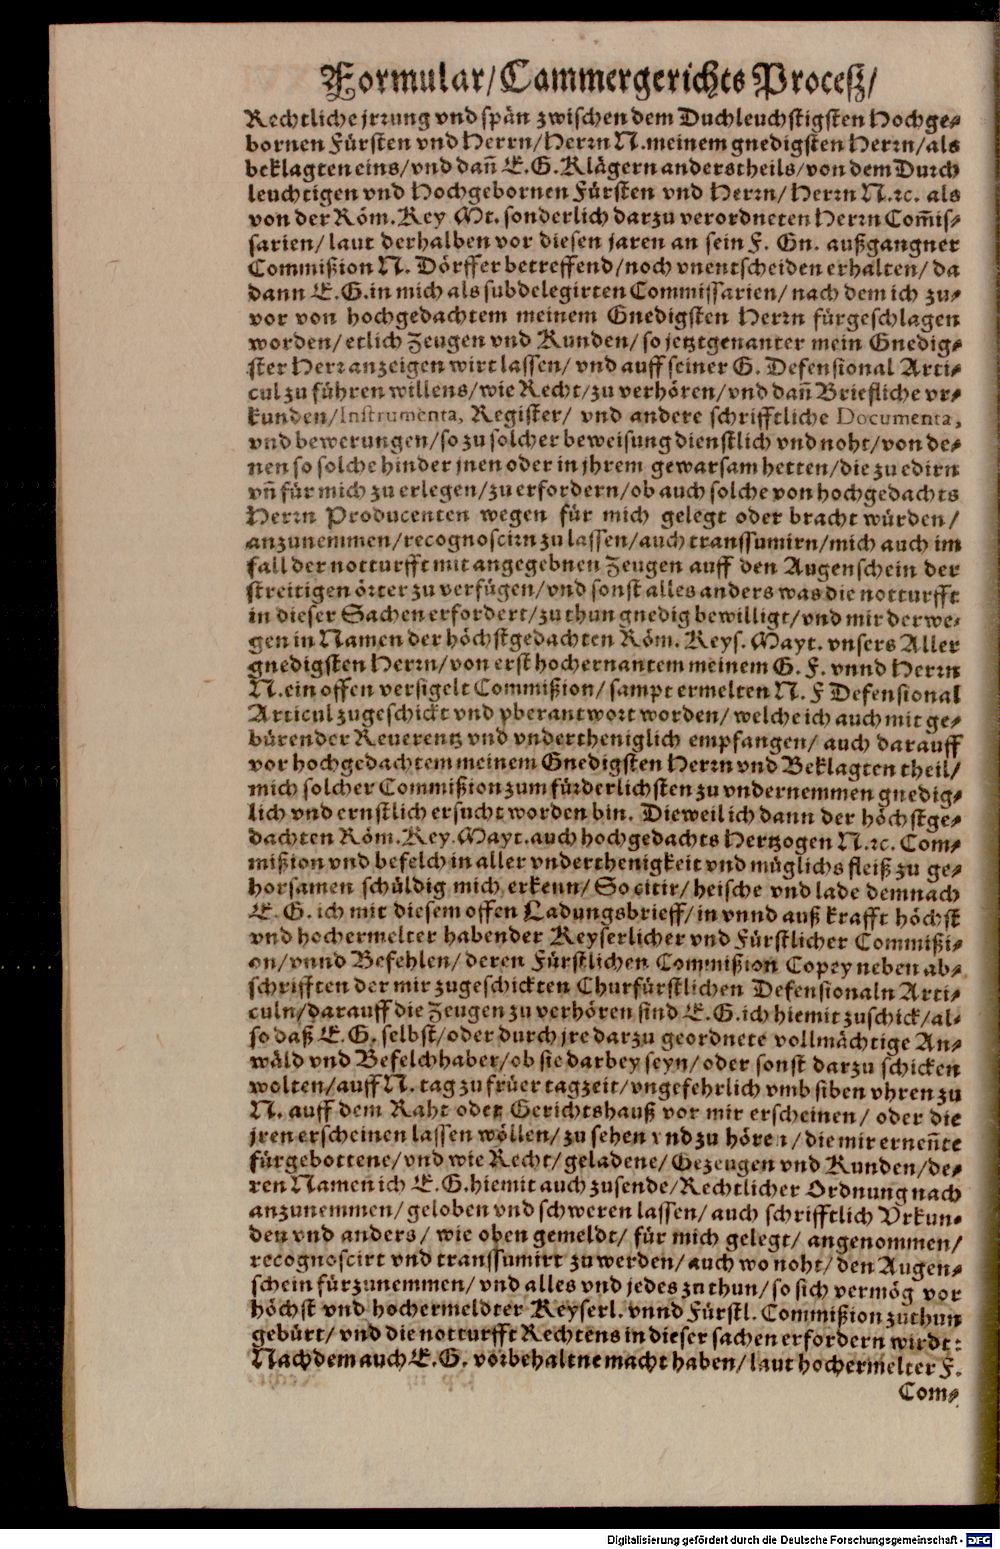 Formular/Cammergerichts Proceſz/
Rechtliche jrrung vnd ſpän zwiſchen dem Duchleuchſtigſten Hochge⸗
bornen Fürſten vnd Herrn/Herrn N. meinem gnedigſten Herrn/als
beklagten eins/vnd dañ E.G. Klägern anderstheils/von dem Durch
leuchtigen vnd Hochgebornen Fürſten vnd Herrn/Herrn N.ꝛc. als
von der Röm. Key Mt. ſonderlich darzu verordneten Herrn Com̃iſ⸗
ſarien/laut derhalben vor dieſen jaren an ſein F. Gn. außgangner
Commißion N. Dörffer betreffend/noch vnentſcheiden erhalten/da
dann E.G. in mich als ſubdelegirten Commiſſarien/nach dem ich zu⸗
vor von hochgedachtem meinem Gnedigſten Herrn fürgeſchlagen
worden/etlich Zeugen vnd Kunden/ſo jetztgenanter mein Gnedig⸗
ſter Herr anzeigen wirt laſſen/vnd auff ſeiner G. Defenſional Arti⸗
cul zu führen willens/wie Recht/zu verhören/vnd dañ Briefliche vr⸗
kunden/Inſtrumenta, Regiſter/ vnd andere ſchrifftliche Documenta,
vnd bewerungen/ſo zu ſolcher beweiſung dienſtlich vnd noht/von de⸗
nen ſo ſolche hinder jnen oder in jhrem gewarſam hetten/die zu edirn
vñ für mich zu erlegen/zu erfordern/ob auch ſolche von hochgedachts
Herrn Producenten wegen für mich gelegt oder bracht würden/
anzunemmen/recognoſcirn zu laſſen/auch transſumirn/mich auch im
fall der notturfft mit angegebnen Zeugen auff den Augenſchein der
ſtreitigen örter zu verfügen/vnd ſonſt alles anders was die notturfft
in dieſer Sachen erfordert/zu thun gnedig bewilligt/vnd mir derwe⸗
gen in Namen der höchſtgedachten Röm. Keyſ. Mayt. vnſers Aller
gnedigſten Herrn/von erſt hochernantem meinem G. F. vnnd Herrn
N. ein offen verſigelt Commißion/ſampt ermelten N. F Defenſional
Articul zugeſchickt vnd vberantwort worden/welche ich auch mit ge⸗
bürender Reuerentz vnd vndertheniglich empfangen/ auch darauff
vor hochgedachtem meinem Gnedigſten Herrn vnd Beklagten theil/
mich ſolcher Commißion zum fürderlichſten zu vndernemmen gnedig⸗
lich vnd ernſtlich erſucht worden bin. Dieweil ich dann der höchſtge⸗
dachten Röm. Key. Mayt. auch hochgedachts Hertzogen N.ꝛc. Com⸗
mißion vnd befelch in aller vnderthenigkeit vnd müglichs fleiß zu ge⸗
horſamen ſchüldig mich erkenn/So citir/heiſche vnd lade demnach
E. G. ich mit dieſem offen Ladungsbrieff/in vnnd auß krafft höchſt
vnd hochermelter habender Keyſerlicher vnd Fürſtlicher Commißi⸗
on/vnnd Befehlen/deren Fürſtlichen Commißion Copey neben ab⸗
ſchrifften der mir zugeſchickten Churfürſtlichen Defenſionaln Arti⸗
culn/darauff die Zeugen zu verhören ſind E.G. ich hiemit zuſchick/al⸗
ſo daß E.G. ſelbſt/oder durch jre darzu geordnete vollmächtige An⸗
wäld vnd Befelchhaber/ob ſie darbey ſeyn/oder ſonſt darzu ſchicken
wolten/auff N. tag zu früer tagzeit/vngefehrlich vmb ſiben vhren zu
N. auff dem Raht oder Gerichtshauß vor mir erſcheinen/ oder die
jren erſcheinen laſſen wöllen/zu ſehen vnd zu hören/die mir erneñte
fürgebottene/vnd wie Recht/geladene/Gezeugen vnd Kunden/de⸗
ren Namen ich E.G. hiemit auch zuſende/Rechtlicher Ordnung nach
anzunemmen/geloben vnd ſchweren laſſen/auch ſchrifftlich Vrkun⸗
den vnd anders/ wie oben gemeldt/ für mich gelegt/ angenommen/
recognoſcirt vnd transſumirt zu werden/auch wo noht/den Augen⸗
ſchein fürzunemmen/vnd alles vnd jedes zu thun/ſo ſich vermög vor
höchſt vnd hochermeldter Keyſerl. vnnd Fürſtl. Commißion zu thun
gebürt/vnd die notturfft Rechtens in dieſer ſachen erfordern wirdt:
Nachdem auch E.G. vorbehaltne macht haben/laut hochermelter F.
Com⸗
Digitalisierung gefördert durch die Deutsche Forschungsgemeinschaft - DFG